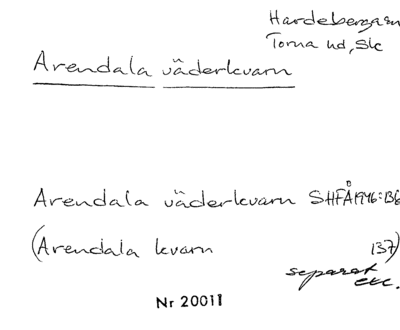 Hardeberga sn
Torna hd, Sk
Arendala väderkvarn
Arendala väderkvarn SHFÅ 1946:136
(Arendala kvarn 137)
separat
exc.
Nr 20011